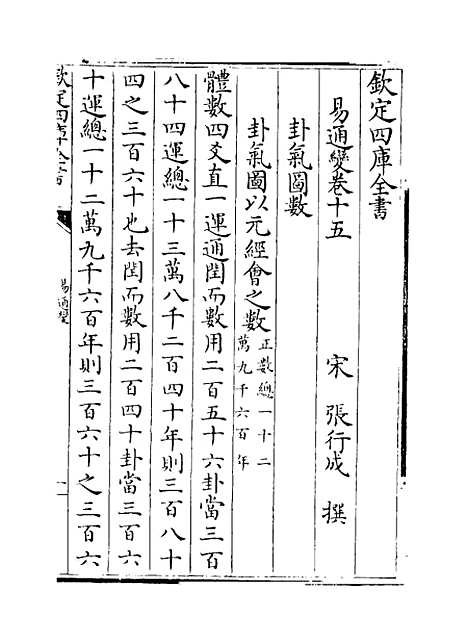 欽定四庫全書
易通變卷十五
宋 張行成 撰
卦氣圖數
卦氣圖以元經會之數正數總一十二
萬九千六百年
體數四爻直一運通閏而數用二百五十六卦當三百
八十四運總一十三萬八千二百四十年則三百八十
四之三百六十也去閏而數用二百四十卦當三百六
十運總一十二萬九千六百年則三百六十之三百六
欽定四庫全書
易通變
一